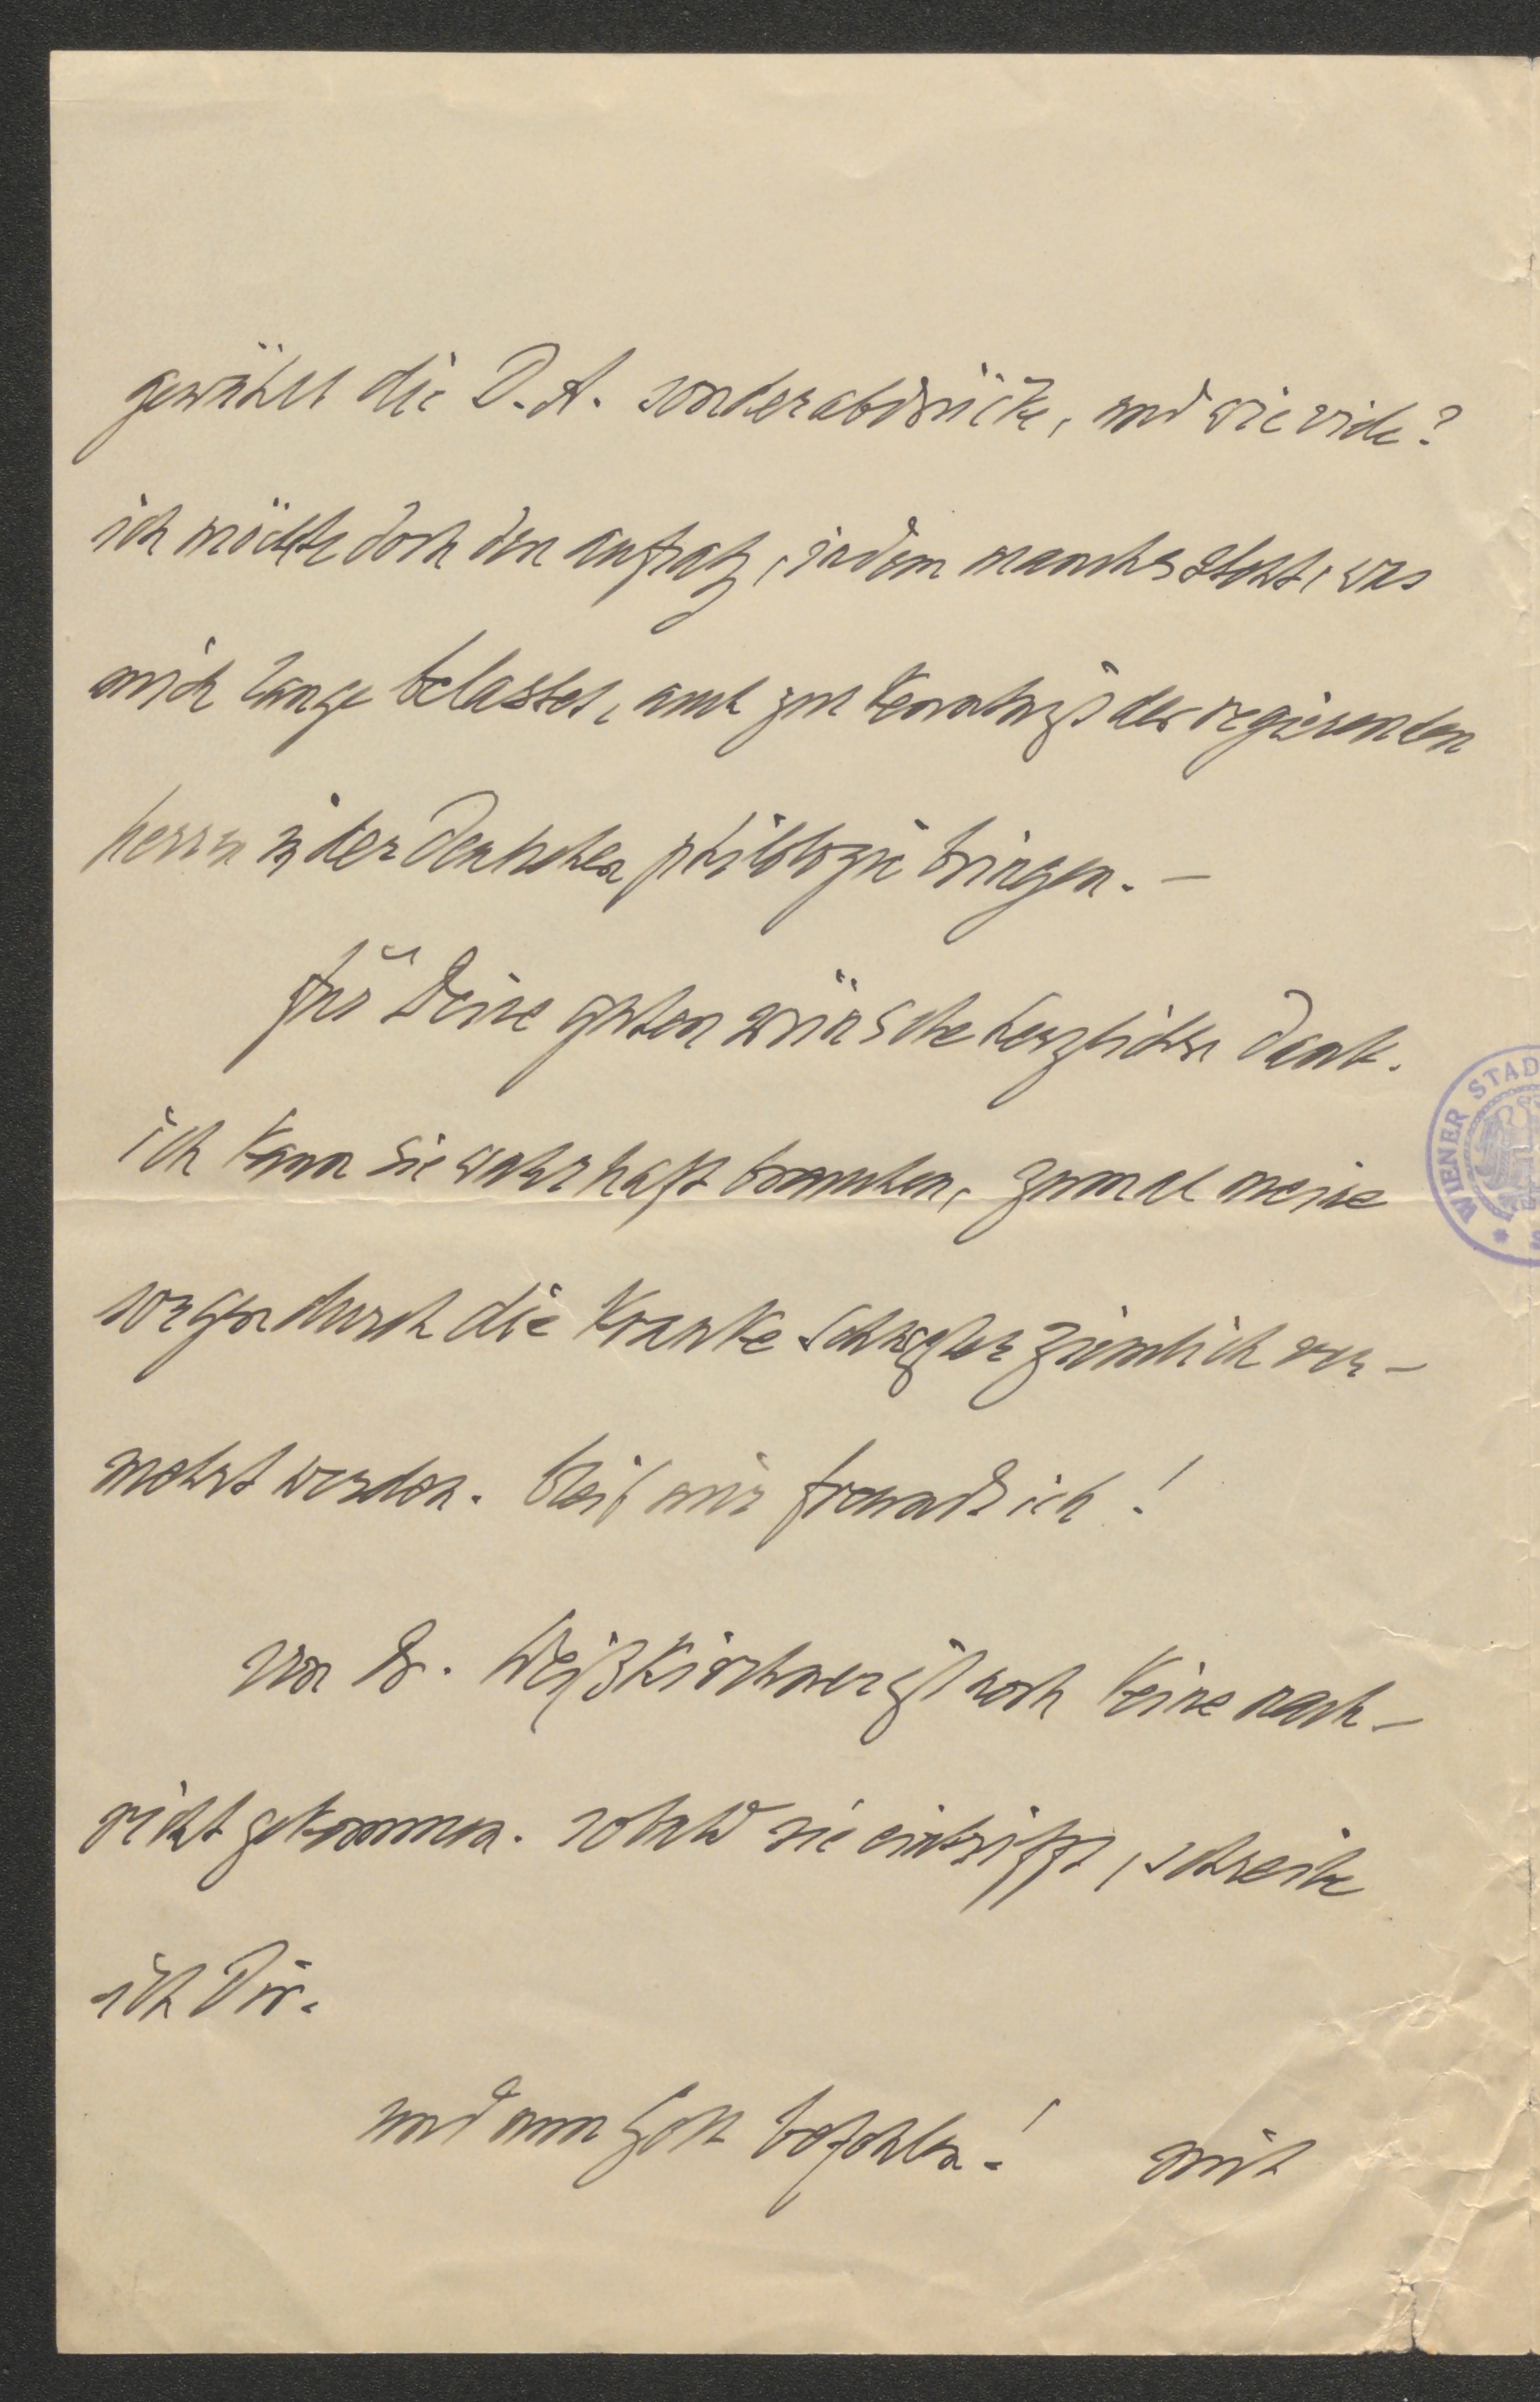 gewährt die D. A. sonderabdrücke, und wie viele?
ich möchte doch den aufsatz, in dem manches steht, was
mich lange belastet, auch zur kenntnis der regierenden
herren in der deutschen philologie bringen. –
für Deine guten wünsche herzlichen dank.
ich kann sie wahrhaft brauchen, zumal meine
sorgen durch die kranke schwester ziemlich ver-
mehrt werden. bleib mir freundlich!
von Dr. Weißkirchner ist noch keine nach-
richt gekommen. sobald sie eintrifft, schreibe
ich Dir.
und nun Gott befohlen! mit
WIENER STAD